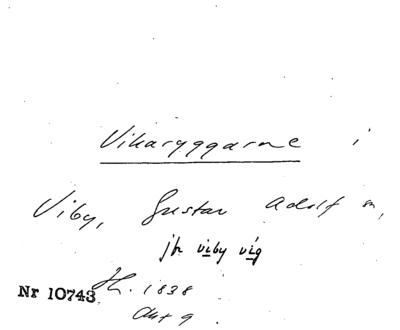 Vikaryggarne i
Viby, Gustav Adolf sn,
jfr viby vig
Nr 10743 H. 1838
Akt 9